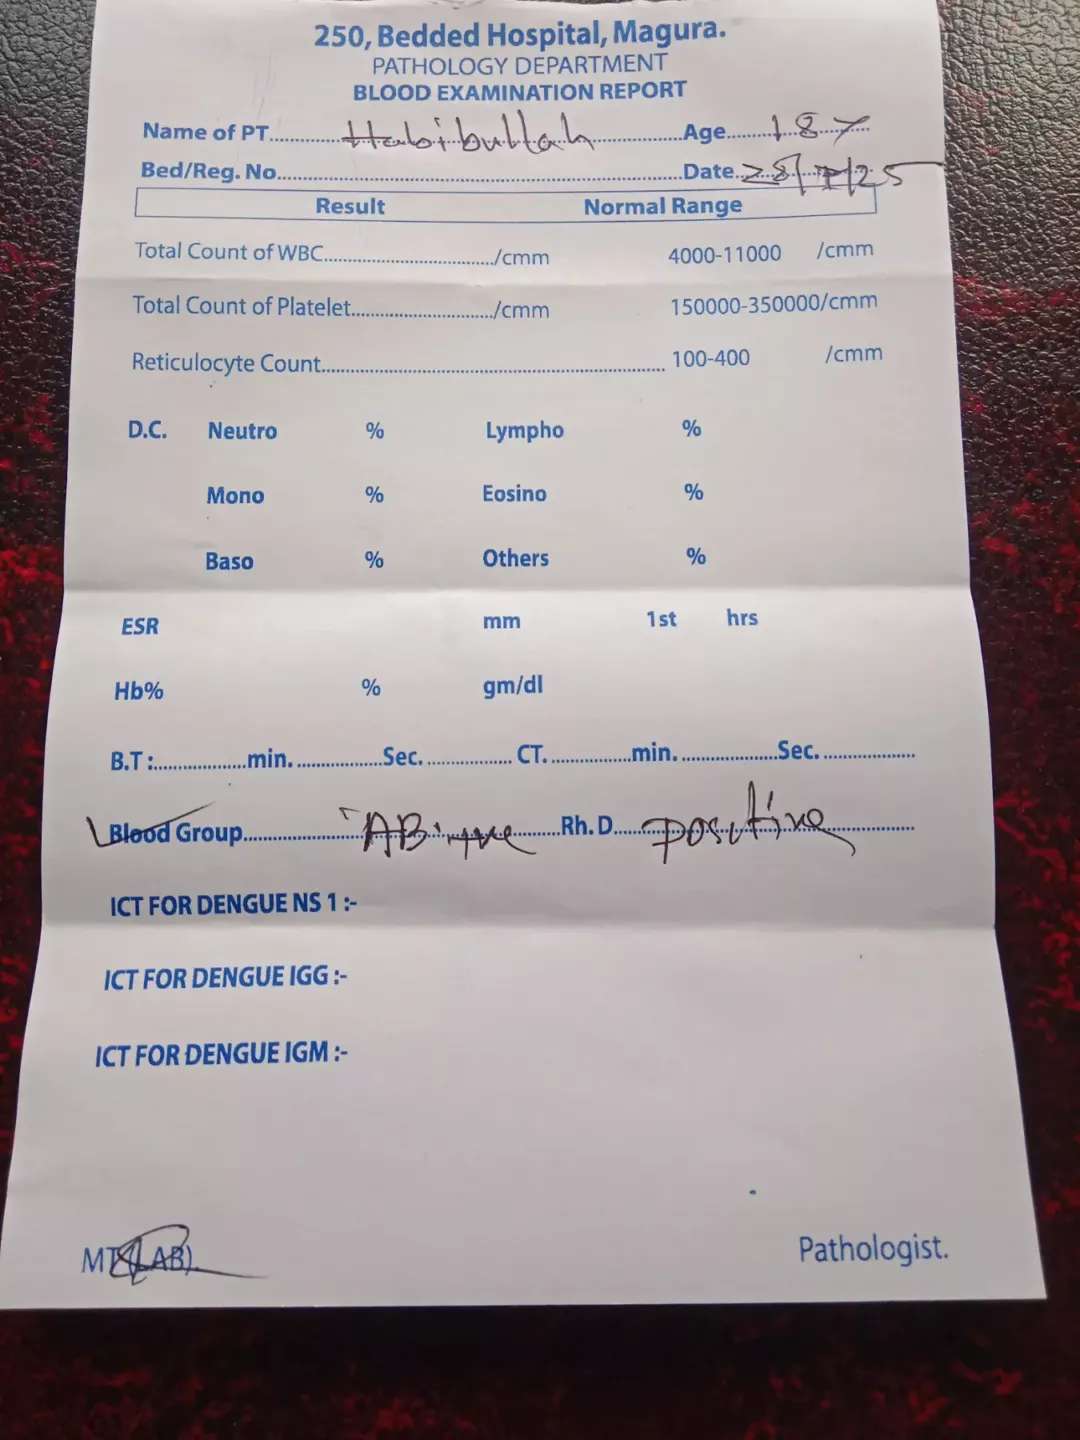 250, Bedded Hospital, Magura.
PATHOLOGY DEPARTMENT
BLOOD EXAMINATION REPORT
Name of PT. Habibullah Age. 18 Y
Bed/Reg. No. Date. 28/7/25
Result Normal Range
Total Count of WBC. /cmm 4000-11000 /cmm
Total Count of Platelet. /cmm 150000-350000/cmm
Reticulocyte Count. 100-400 /cmm
D.C. Neutro % Lympho %
Mono % Eosino %
Baso % Others %
ESR mm 1st hrs
Hb% % gm/dl
B.T :. min. Sec. CT. min. Sec.
Blood Group. "AB" +ve Rh. D. positive
ICT FOR DENGUE NS 1 :-
ICT FOR DENGUE IGG :-
ICT FOR DENGUE IGM :-
MT (LAB). Pathologist.